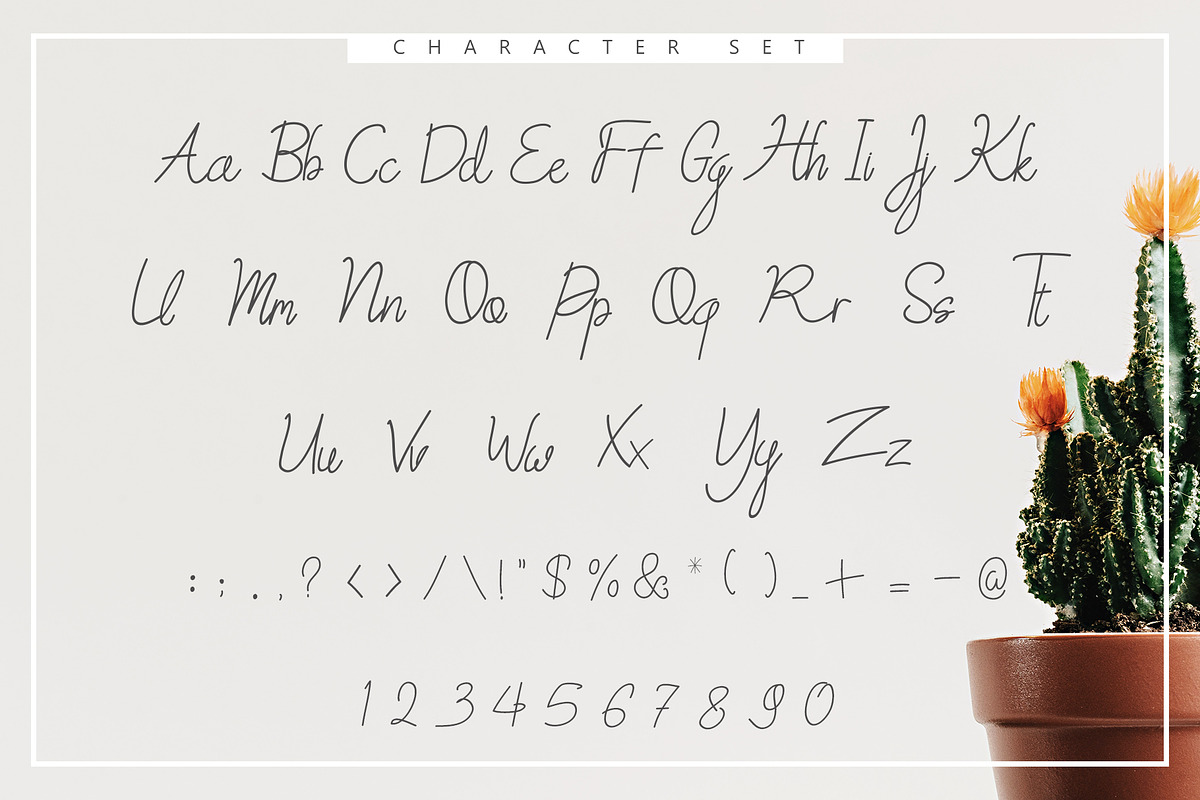 CHARACTER SET
Aa Bb Cc Dd Ee Ff Gg Hh Ii Jj Kk
Ll Mm Nn Oo Pp Qq Rr Ss Tt
Uu Vv Ww Xx Yy Zz
: ; . , ? < > / \ ! " $ % & * ( ) _ + = - @
1 2 3 4 5 6 7 8 9 0